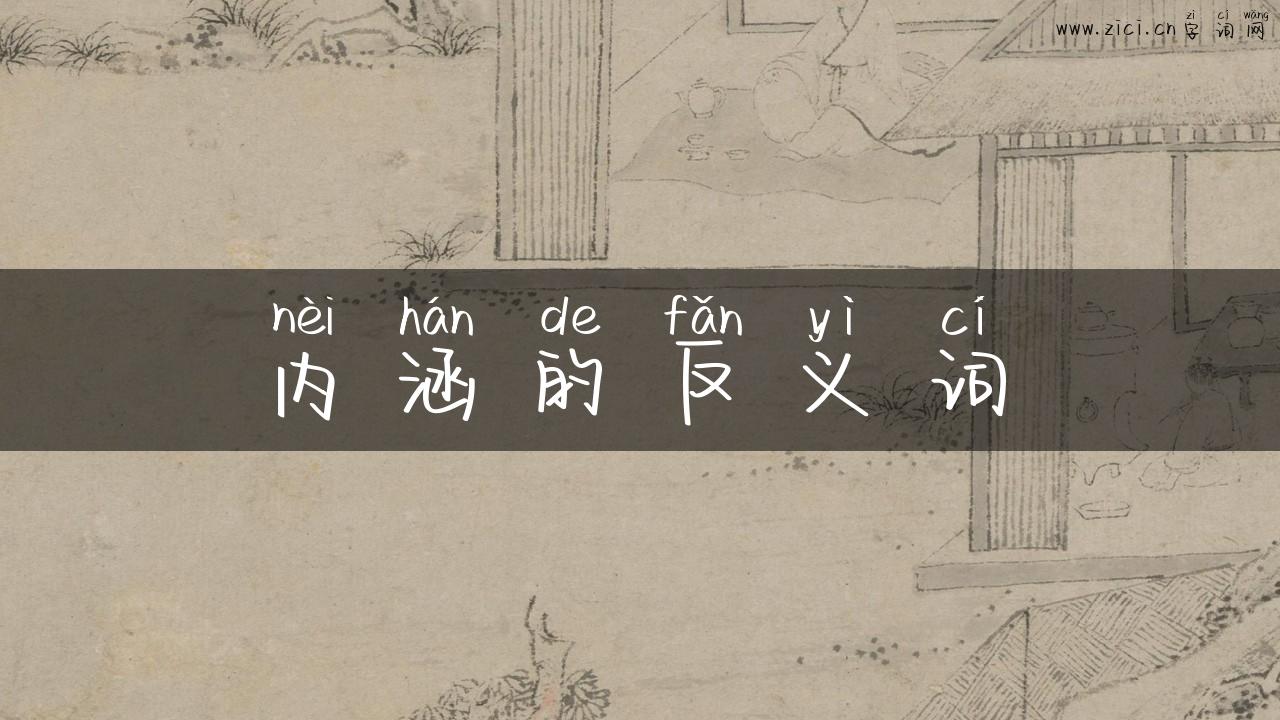 zì cí wǎng
www.zici.cn 字词网
nèi hán de fǎn yì cí
内涵的反义词